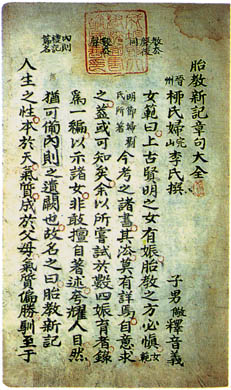 胎教新記章句大全
晉州柳氏婦完山李氏撰
子男儆釋音義
女範曰上古賢明之女有娠胎教之方必慎女範
明節婦劉氏所著今考之諸書其法莫有詳焉自意求
之蓋或可知矣余以所嘗試於數四娠育者錄
爲一編以示諸女非敢擅自著述夸耀人目然
猶可備內則之遺闕也故名之曰胎教新記
內則禮記篇名
人生之性本於天氣質成於父母氣質偏勝馴至于